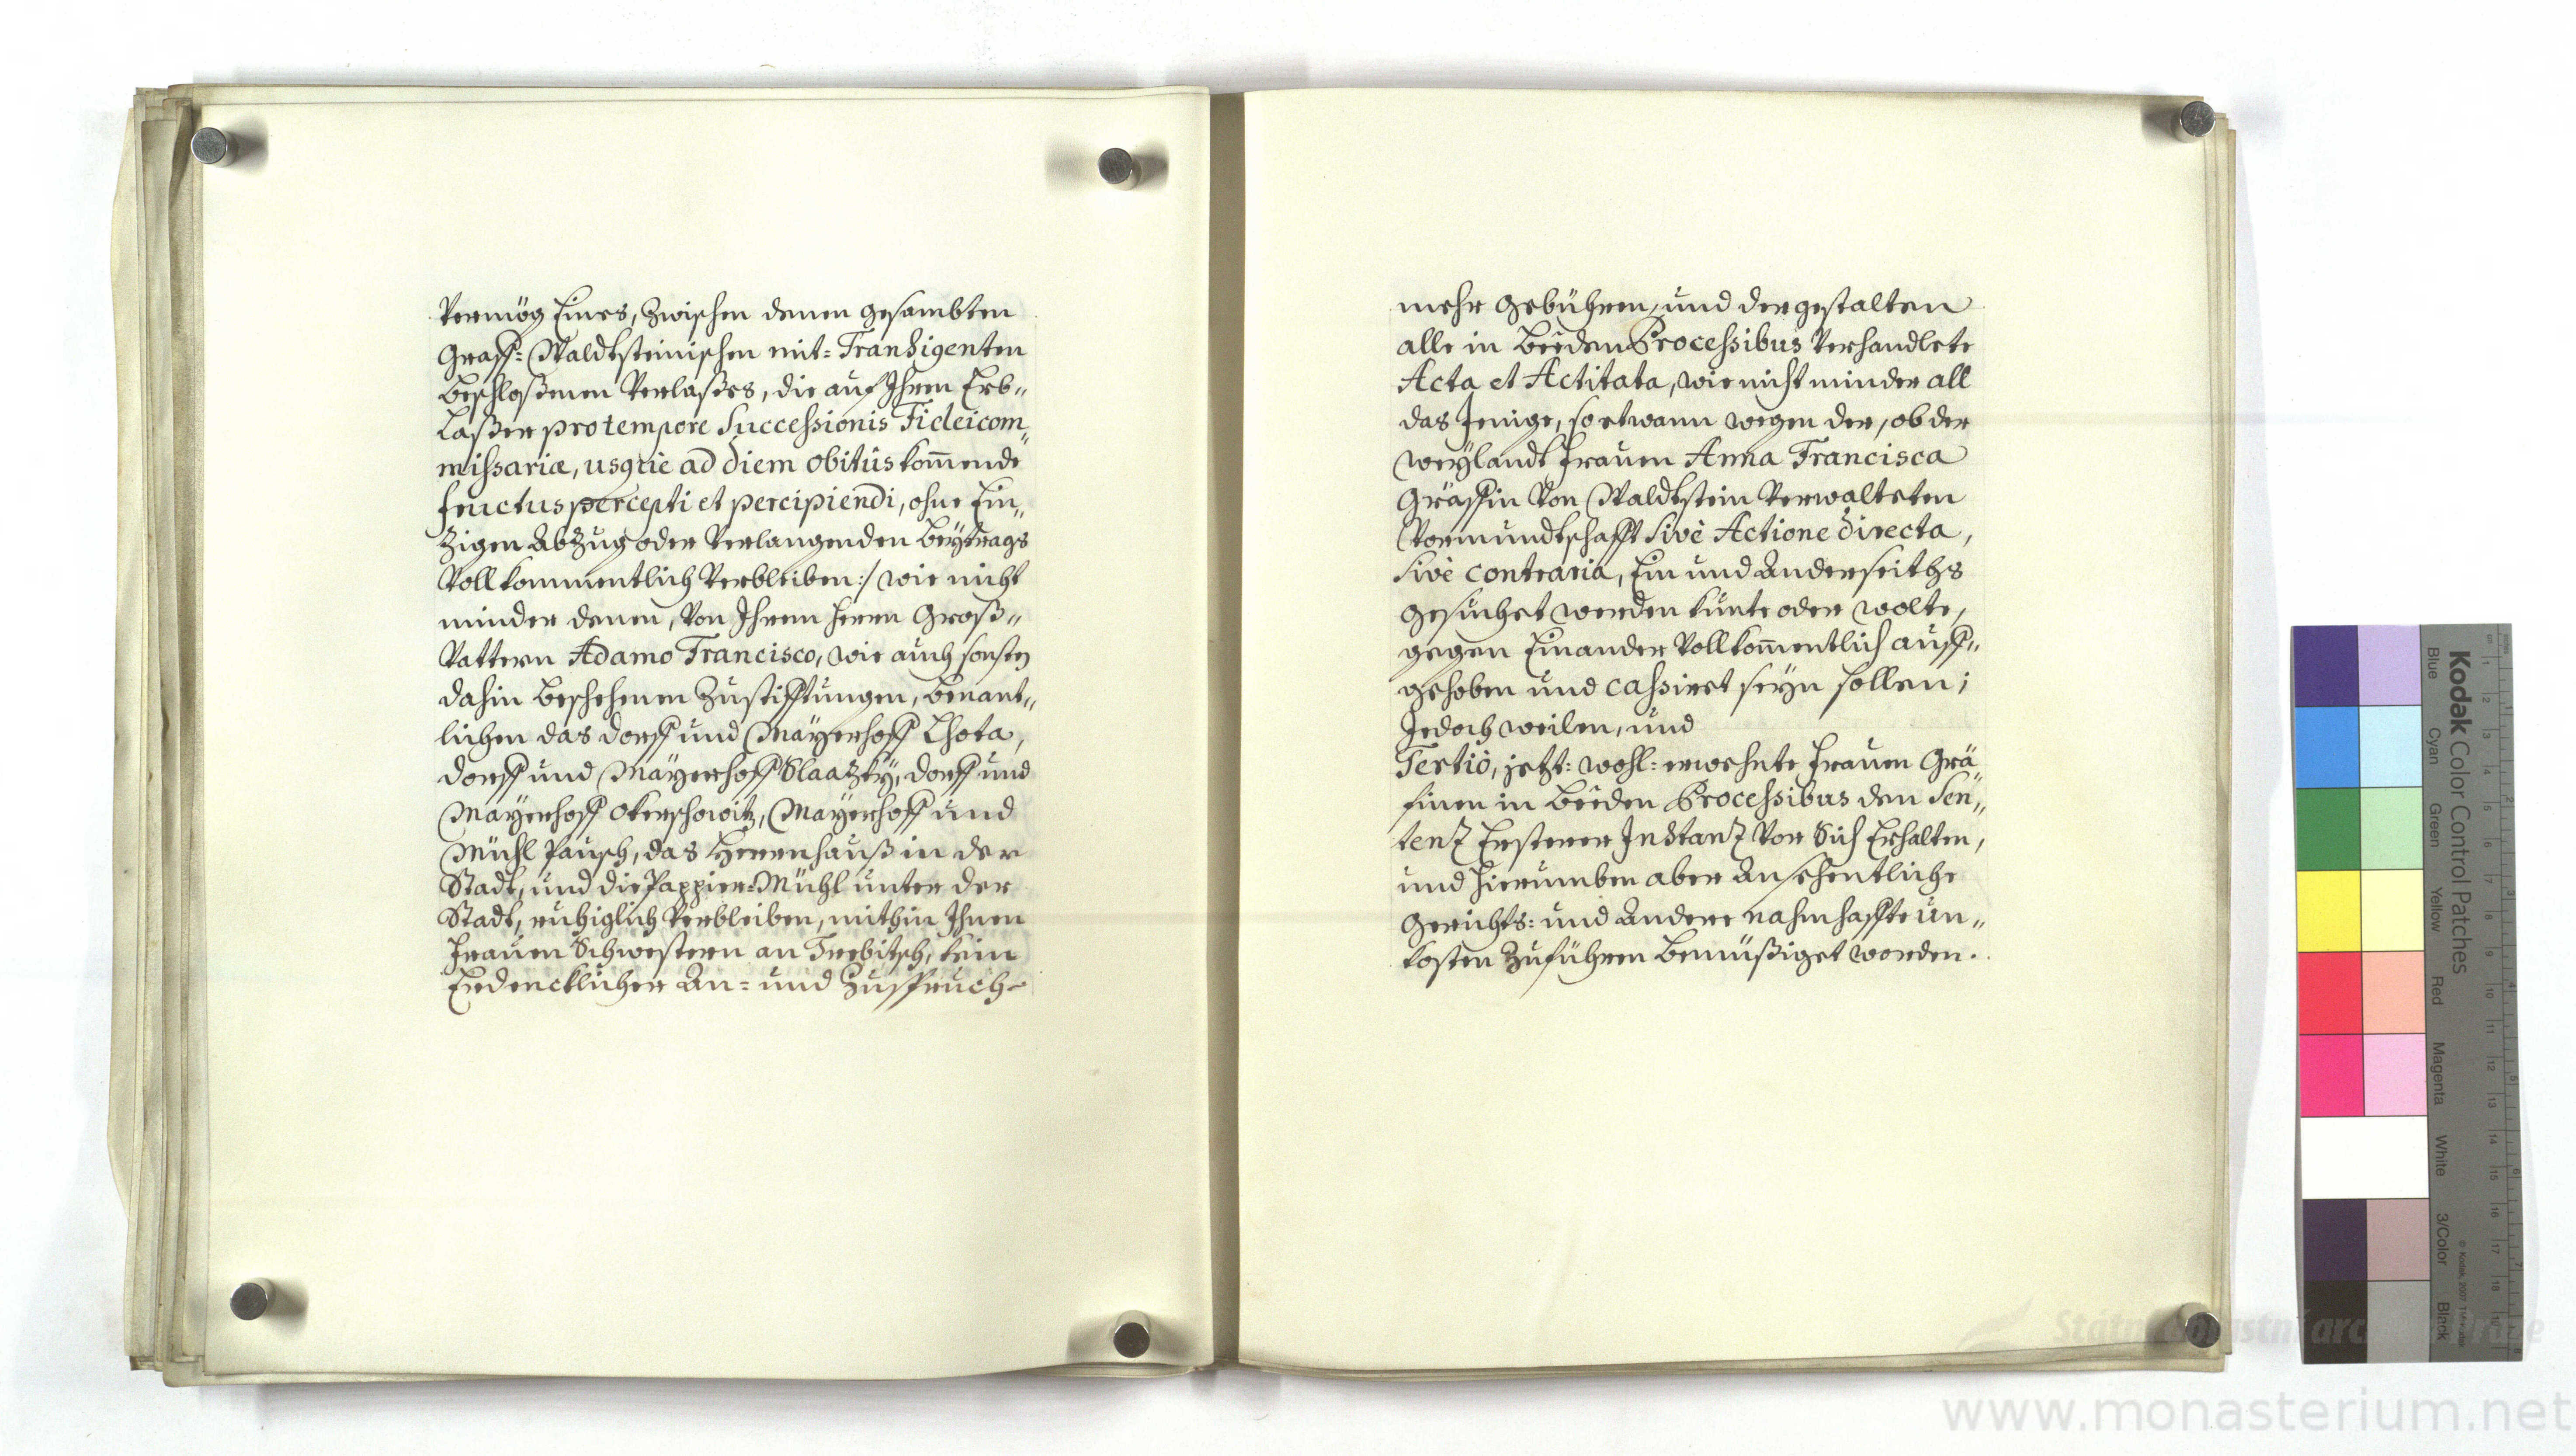 Vermög Eines, zwischen denen gesambten
Graff= Waldtsteinischen mit= Transigenten
beschloßenen Verlaßes, die auf Ihren Erb„
Laßer pro tempore Successionis Fideicom„
missariæ, usque ad diem obitûs kom̄ende
fructus percepti et percipiendi, ohne Ein„
zigen Abzug oder Verlangenden Beÿtrags
Vollkommentlich Verbleiben:/ wie nicht
minder denen, Von Ihrem Herrn Groß„
Vattern Adamo Francisco, wie auch sonsten
dahin beschehenen Zustifftungen, benant„
lichen das dorff und Mayerhoff Lhota,
dorff und Mayerhoff Slaatzky, dorff und
Mayerhoff Okerschowitz, Mayerhoff und
Mühl Pausch, das Herrenhauß in der
Stadt, und die Pappier=Mühl unter der
Stadt, ruhiglich Verbleiben, mithin Ihnen
Frauen Schwestern an Trebitsch, kein
Erdencklicher An= und Zuspruch
mehr gebühren, und dergestalten
alle in beeden Processibus Verhandlete
Acta et Actitata, wie nicht minder all
das Jenige, so etwann wegen der, ob der
weÿlandt Frauen Anna Francisca
Gräffin Von Waldtstein Verwalteten
Vormundtschafft sivè Actione directa,
sivè contraria, Ein und Anderseiths
gesuchet werden künte oder wolte,
gegen Einander Vollkom̄entlich auff„
gehoben und cassiret seÿn sollen;
Jedoch weilen, und
Tertiò, jetzt: wohl: erwehnte Frauen Grä„
finen in beeden Processibus den Sen„
tenz Ersterer Instanz Vor Sich Erhalten,
und hierumben aber Ansehentliche
Gerichts: und Andere nahmhaffte Un„
kosten Zuführen bemüßiget worden.
Kodak Color Control Patches
Blue Cyan Green Yellow Red Magenta White 3/Color Black
www.monasterium.net